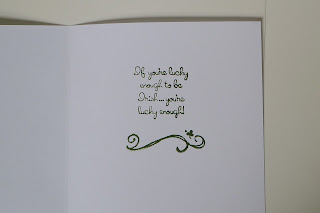 If you're lucky
enough to be
Irish... you're
lucky enough!